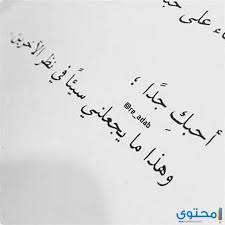 اء على حب
أحبكِ جدًا ؛
@re_adab
وهذا ما يجعلني سيئًا في نظر الآخرين.
محتوى